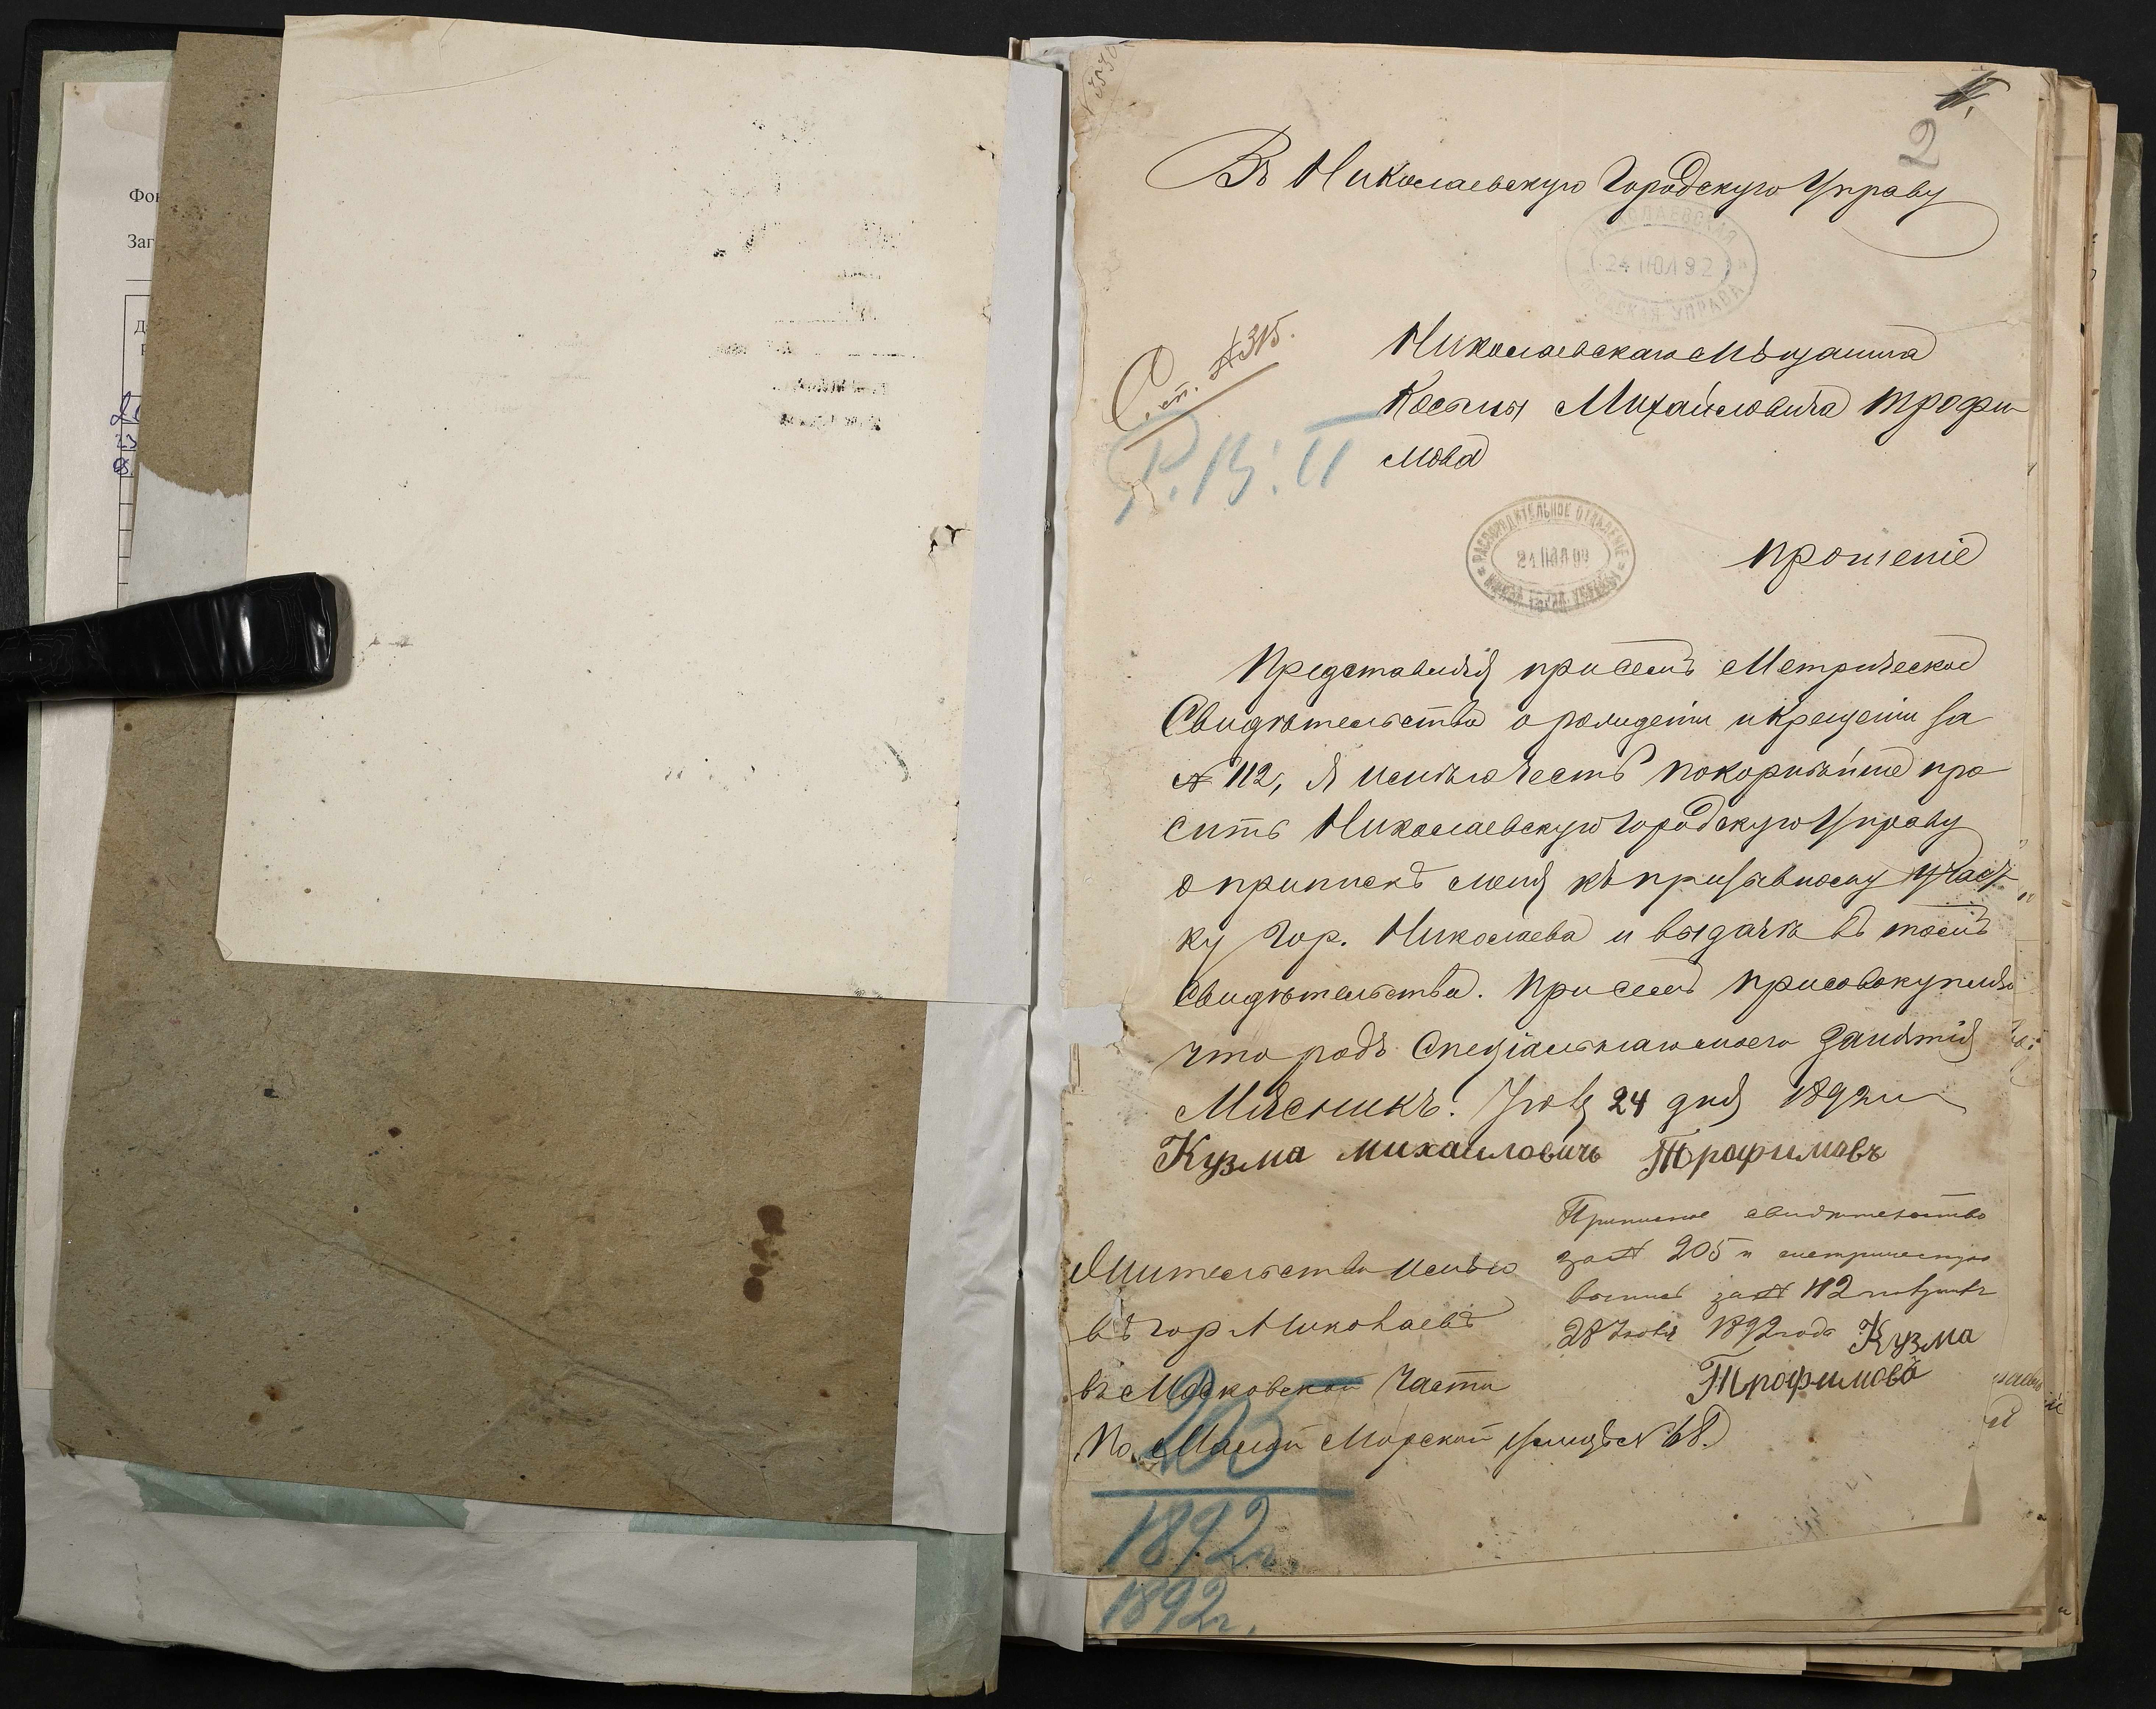 Фон
Заг
2
Въ Николаевскую Городскую Управу
НИКОЛАЕВСКАЯ
24 ІЮЛ 92
ГОРОДСКАЯ УПРАВА
Ст. № 315.
Николаевскаго Мѣщанина
Косьмы Михайловича Трофи-
мова
РАСПОРЯДИТЕЛЬНОЕ ОТДѢЛЕНІЕ
прошеніе
Представляя при семъ Метрическое
Свидѣтельство о рожденіи и крещеніи за
№ 112, я имѣю честь покорнѣйше про-
сить Николаевскую Городскую Управу
о припискѣ меня къ призывному участ-
ку гор. Николаева и выдачѣ въ томъ
Свидѣтельства. При семъ присовокупляю
что родъ Спеціальнаго моего занятія
Мясникъ. Іюля 24 дня 1892 г.
Кузма михаиловичъ Трофимовъ
Приписное свидѣтельство
за № 205 и метрическую
выпись за № 112 получилъ
28 Іюля 1892 года Кузма
Трофимовъ
Жительство имѣю
въ гор Николаевѣ
въ Московской части
по Малой Морской улицѣ № 68.
205
1892 г.
1892 г.